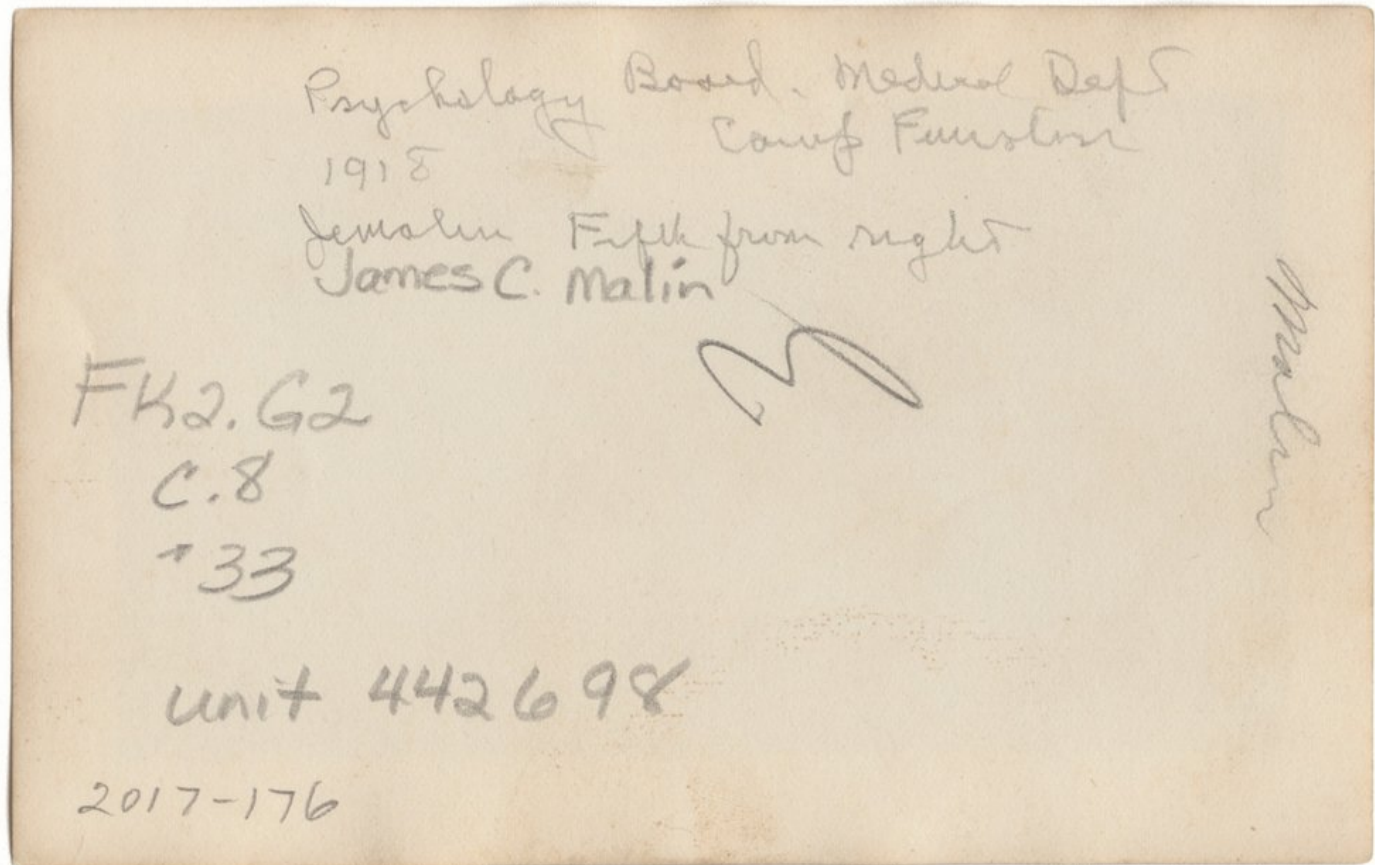 Psychology Board. Medical Dept
Camp Funston
1918
JCMalin Fifth from right
James C. Malin
FK2.G2
C.8
*33
unit 442698
2017-176
Malin